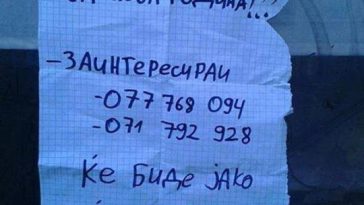 ГОДИНА!!!
-ЗАИНТЕРЕСИРАИ
-077 768 094
-071 792 928
ЌЕ БИДЕ ЈАКО